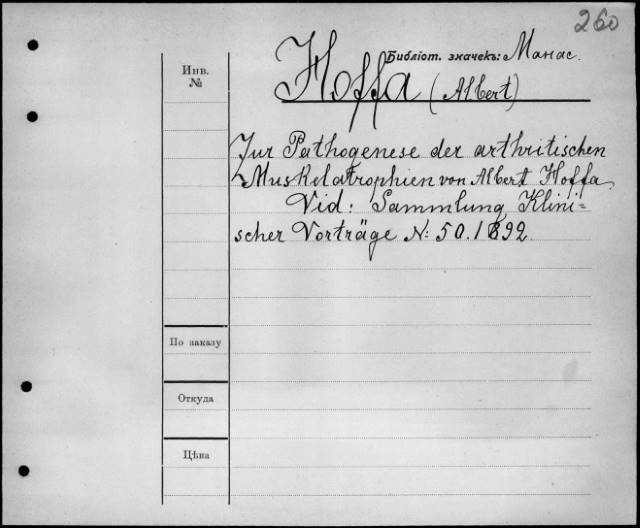 260
Библіот. значекъ: Манас.
Инв.
№
Hoffa (Albert)
Zur Pathogenese der arthritischen
Muskelatrophien von Albert Hoffa
Vid: Sammlung Klini=
scher Vorträge N: 50. 1892.
По заказу
Откуда
Цѣна